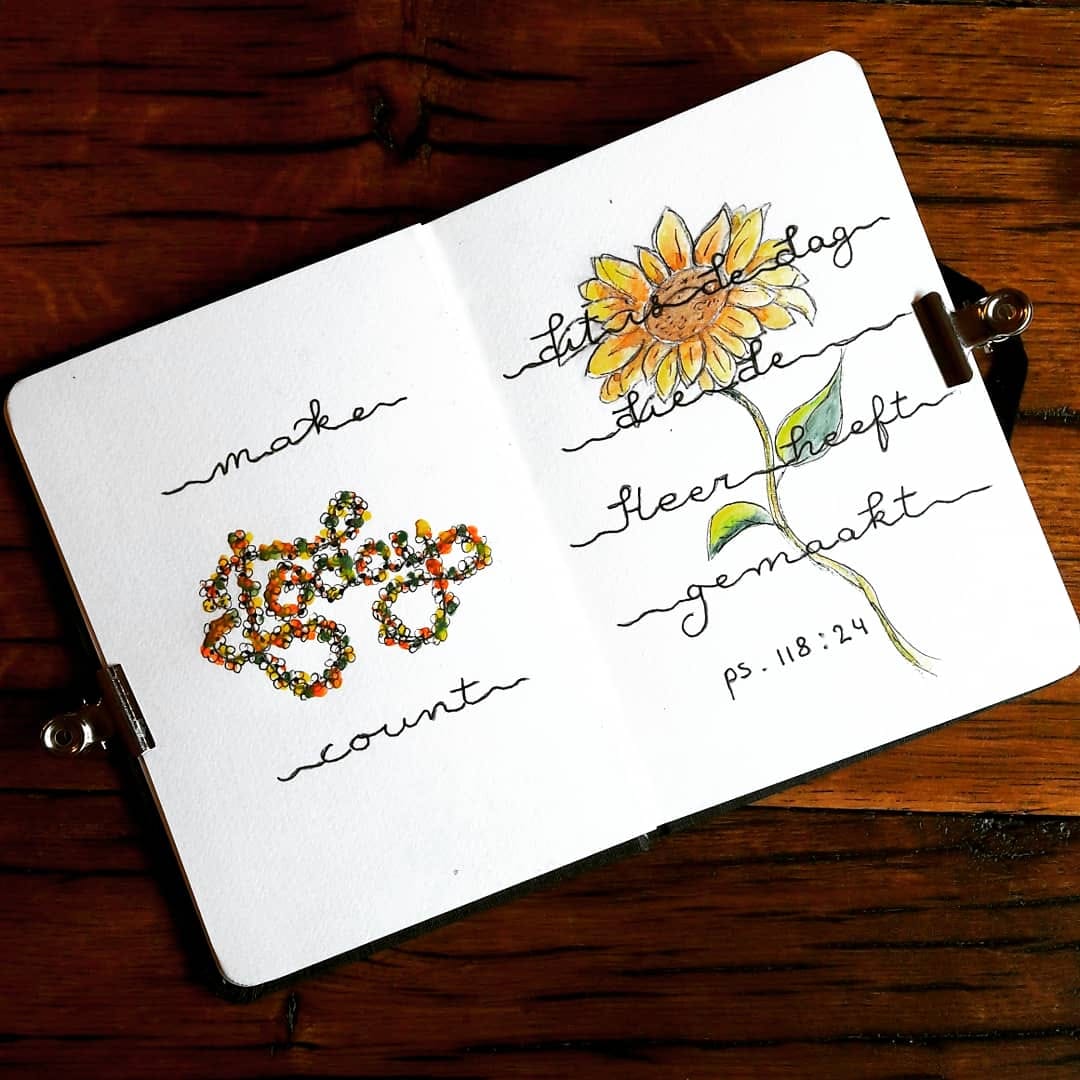 make
today
count
dit is de dag
die de
Heer heeft
gemaakt
ps. 118:24